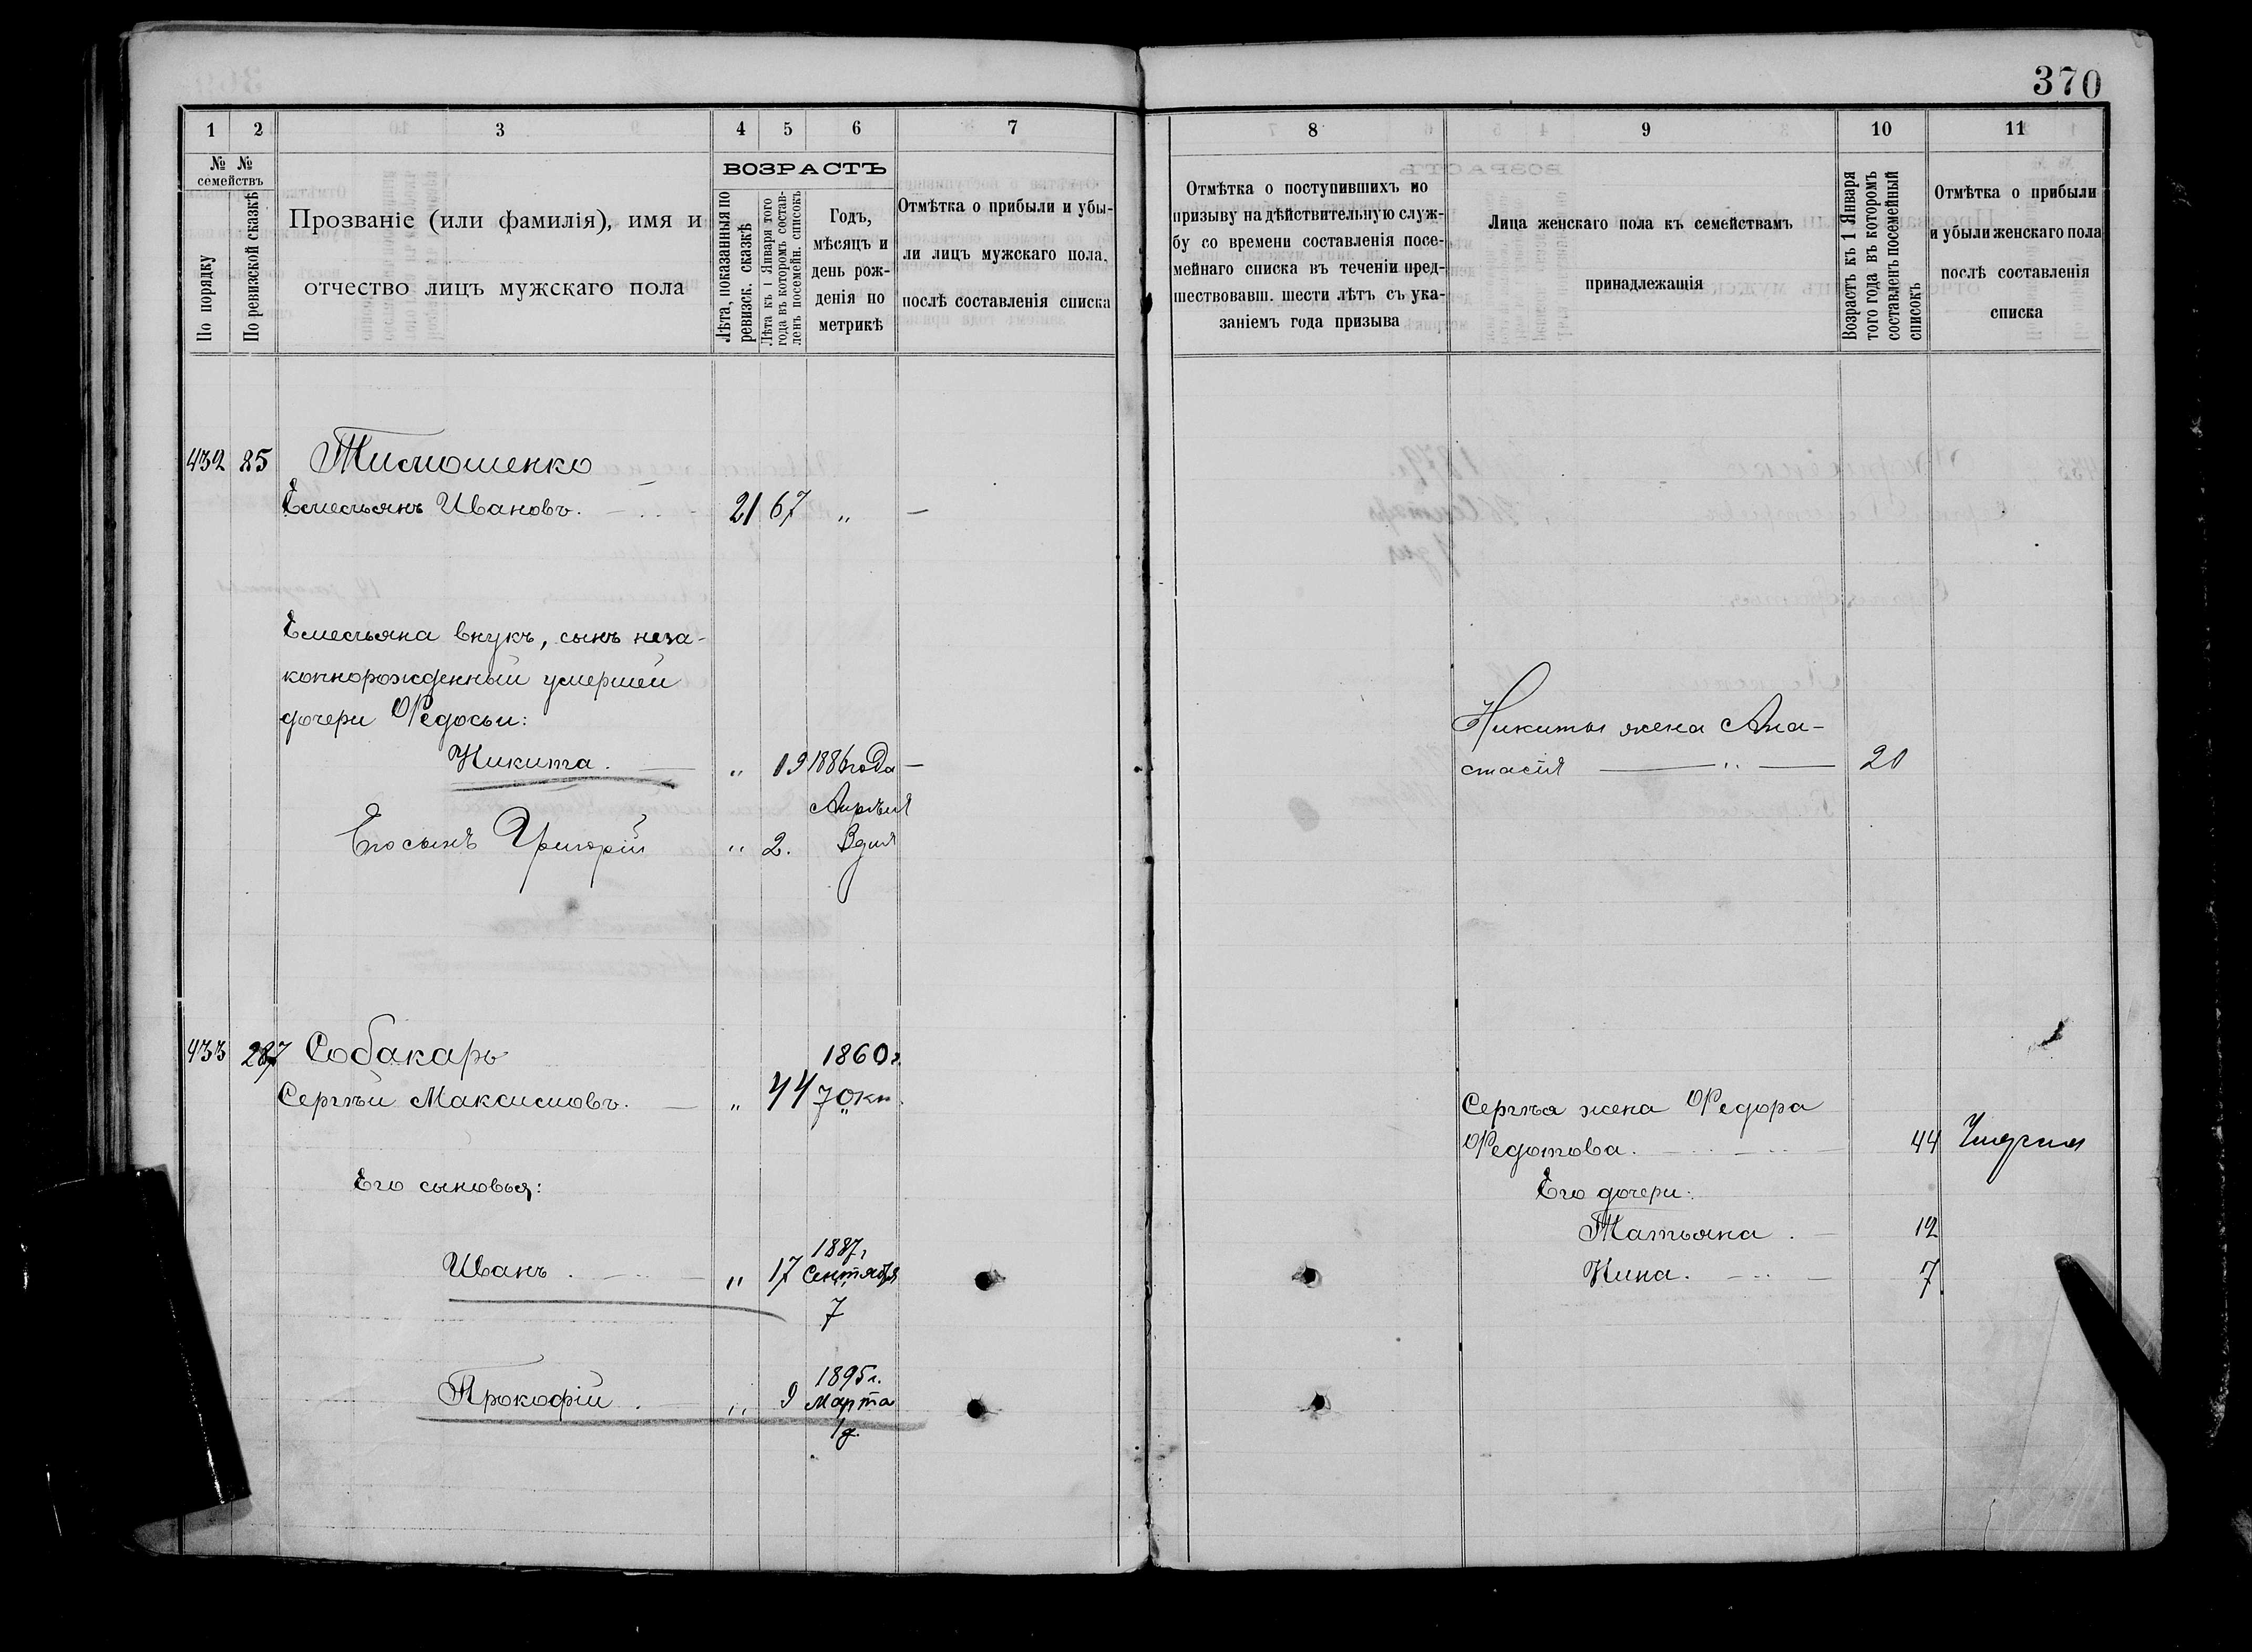 370
1 2 3 4 5 6 7
№ № семействъ
По порядку
По ревизской сказкѣ
Прозваніе (или фамилія), имя и
отчество лицъ мужскаго пола
ВОЗРАСТЪ
Лѣта, показанныя по
ревизск. сказкѣ
Лѣта къ 1 Января того
года въ которомъ состав-
ленъ посемейн. списокъ
Годъ,
мѣсяцъ и
день рож-
денія по
метрикѣ
Отмѣтка о прибыли и убы-
ли лицъ мужскаго пола,
послѣ составленія списка
8 9 10 11
Отмѣтка о поступившихъ по
призыву на дѣйствительную служ-
бу со времени составленія посе-
мейнаго списка въ теченіи пред-
шествовавш. шести лѣтъ съ ука-
заніемъ года призыва
Лица женскаго пола къ семействамъ
принадлежащія
Возрастъ къ 1 Января
того года въ которомъ
составленъ посемейный
списокъ
Отмѣтка о прибыли
и убыли женскаго пола
послѣ составленія
списка
432 25 Тимошенко
Емельянъ Ивановъ. 21 67 „ —
Емельяна внукъ, сынъ неза-
коннорожденный умершей
дочери Федосьи:
Никита. — „ 19 1886 года —
Апрѣля
3 дня
Его сынъ Григорій „ 2.
Никиты жена Ана-
стасія — „ — 20
433 287 Собакарь 1860 г.
Сергѣй Максимовъ. — „ 44 7 Окт.
Его сыновья:
Иванъ. — „ 17 1887 г
Сентября
7
Прокофій. — „ 9 1895 г.
Марта
1 д.
Сергѣя жена Федора
Федотова. — 44
Его дочери:
Татьяна. — 12
Нина. — 7